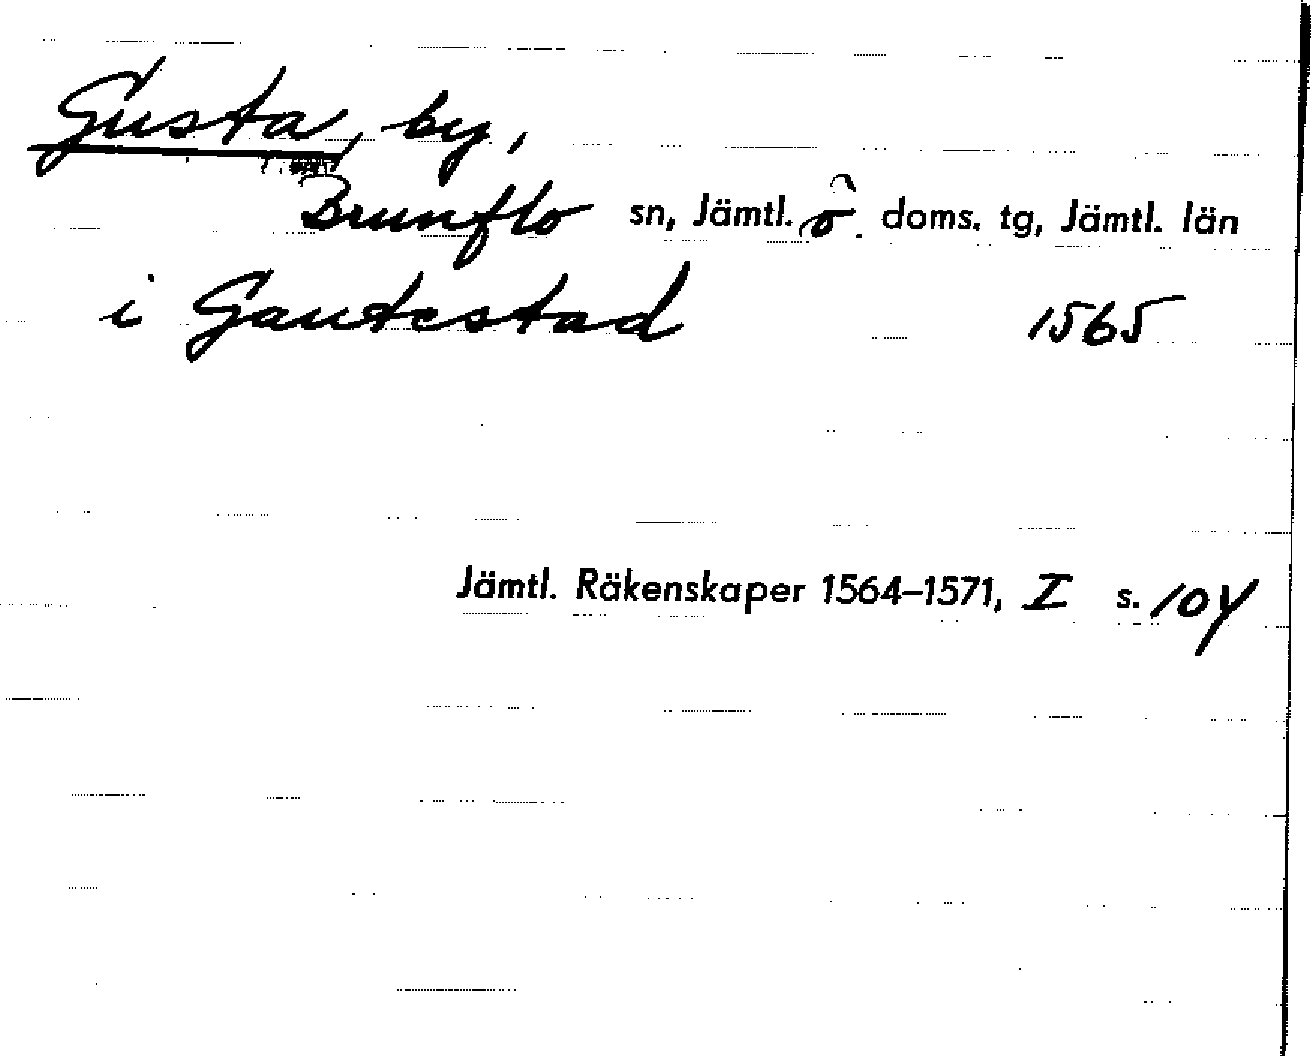 Gusta, by,
Brunflo sn, Jämtl. ö. doms. tg, Jämtl. län
i Gautestad 1565
Jämtl. Räkenskaper 1564–1571, I s. 104